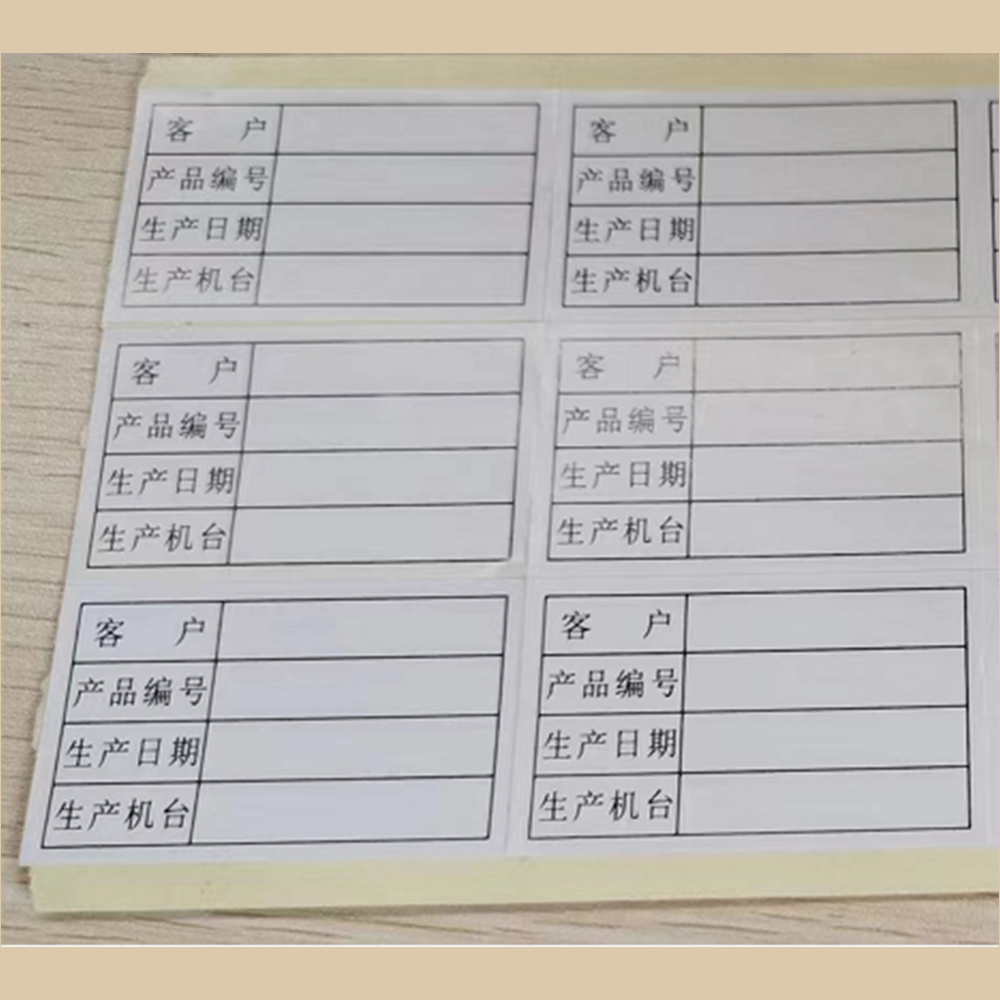 客 户
产品编号
生产日期
生产机台
客 户
产品编号
生产日期
生产机台
客 户
产品编号
生产日期
生产机台
客 户
产品编号
生产日期
生产机台
客 户
产品编号
生产日期
生产机台
客 户
产品编号
生产日期
生产机台